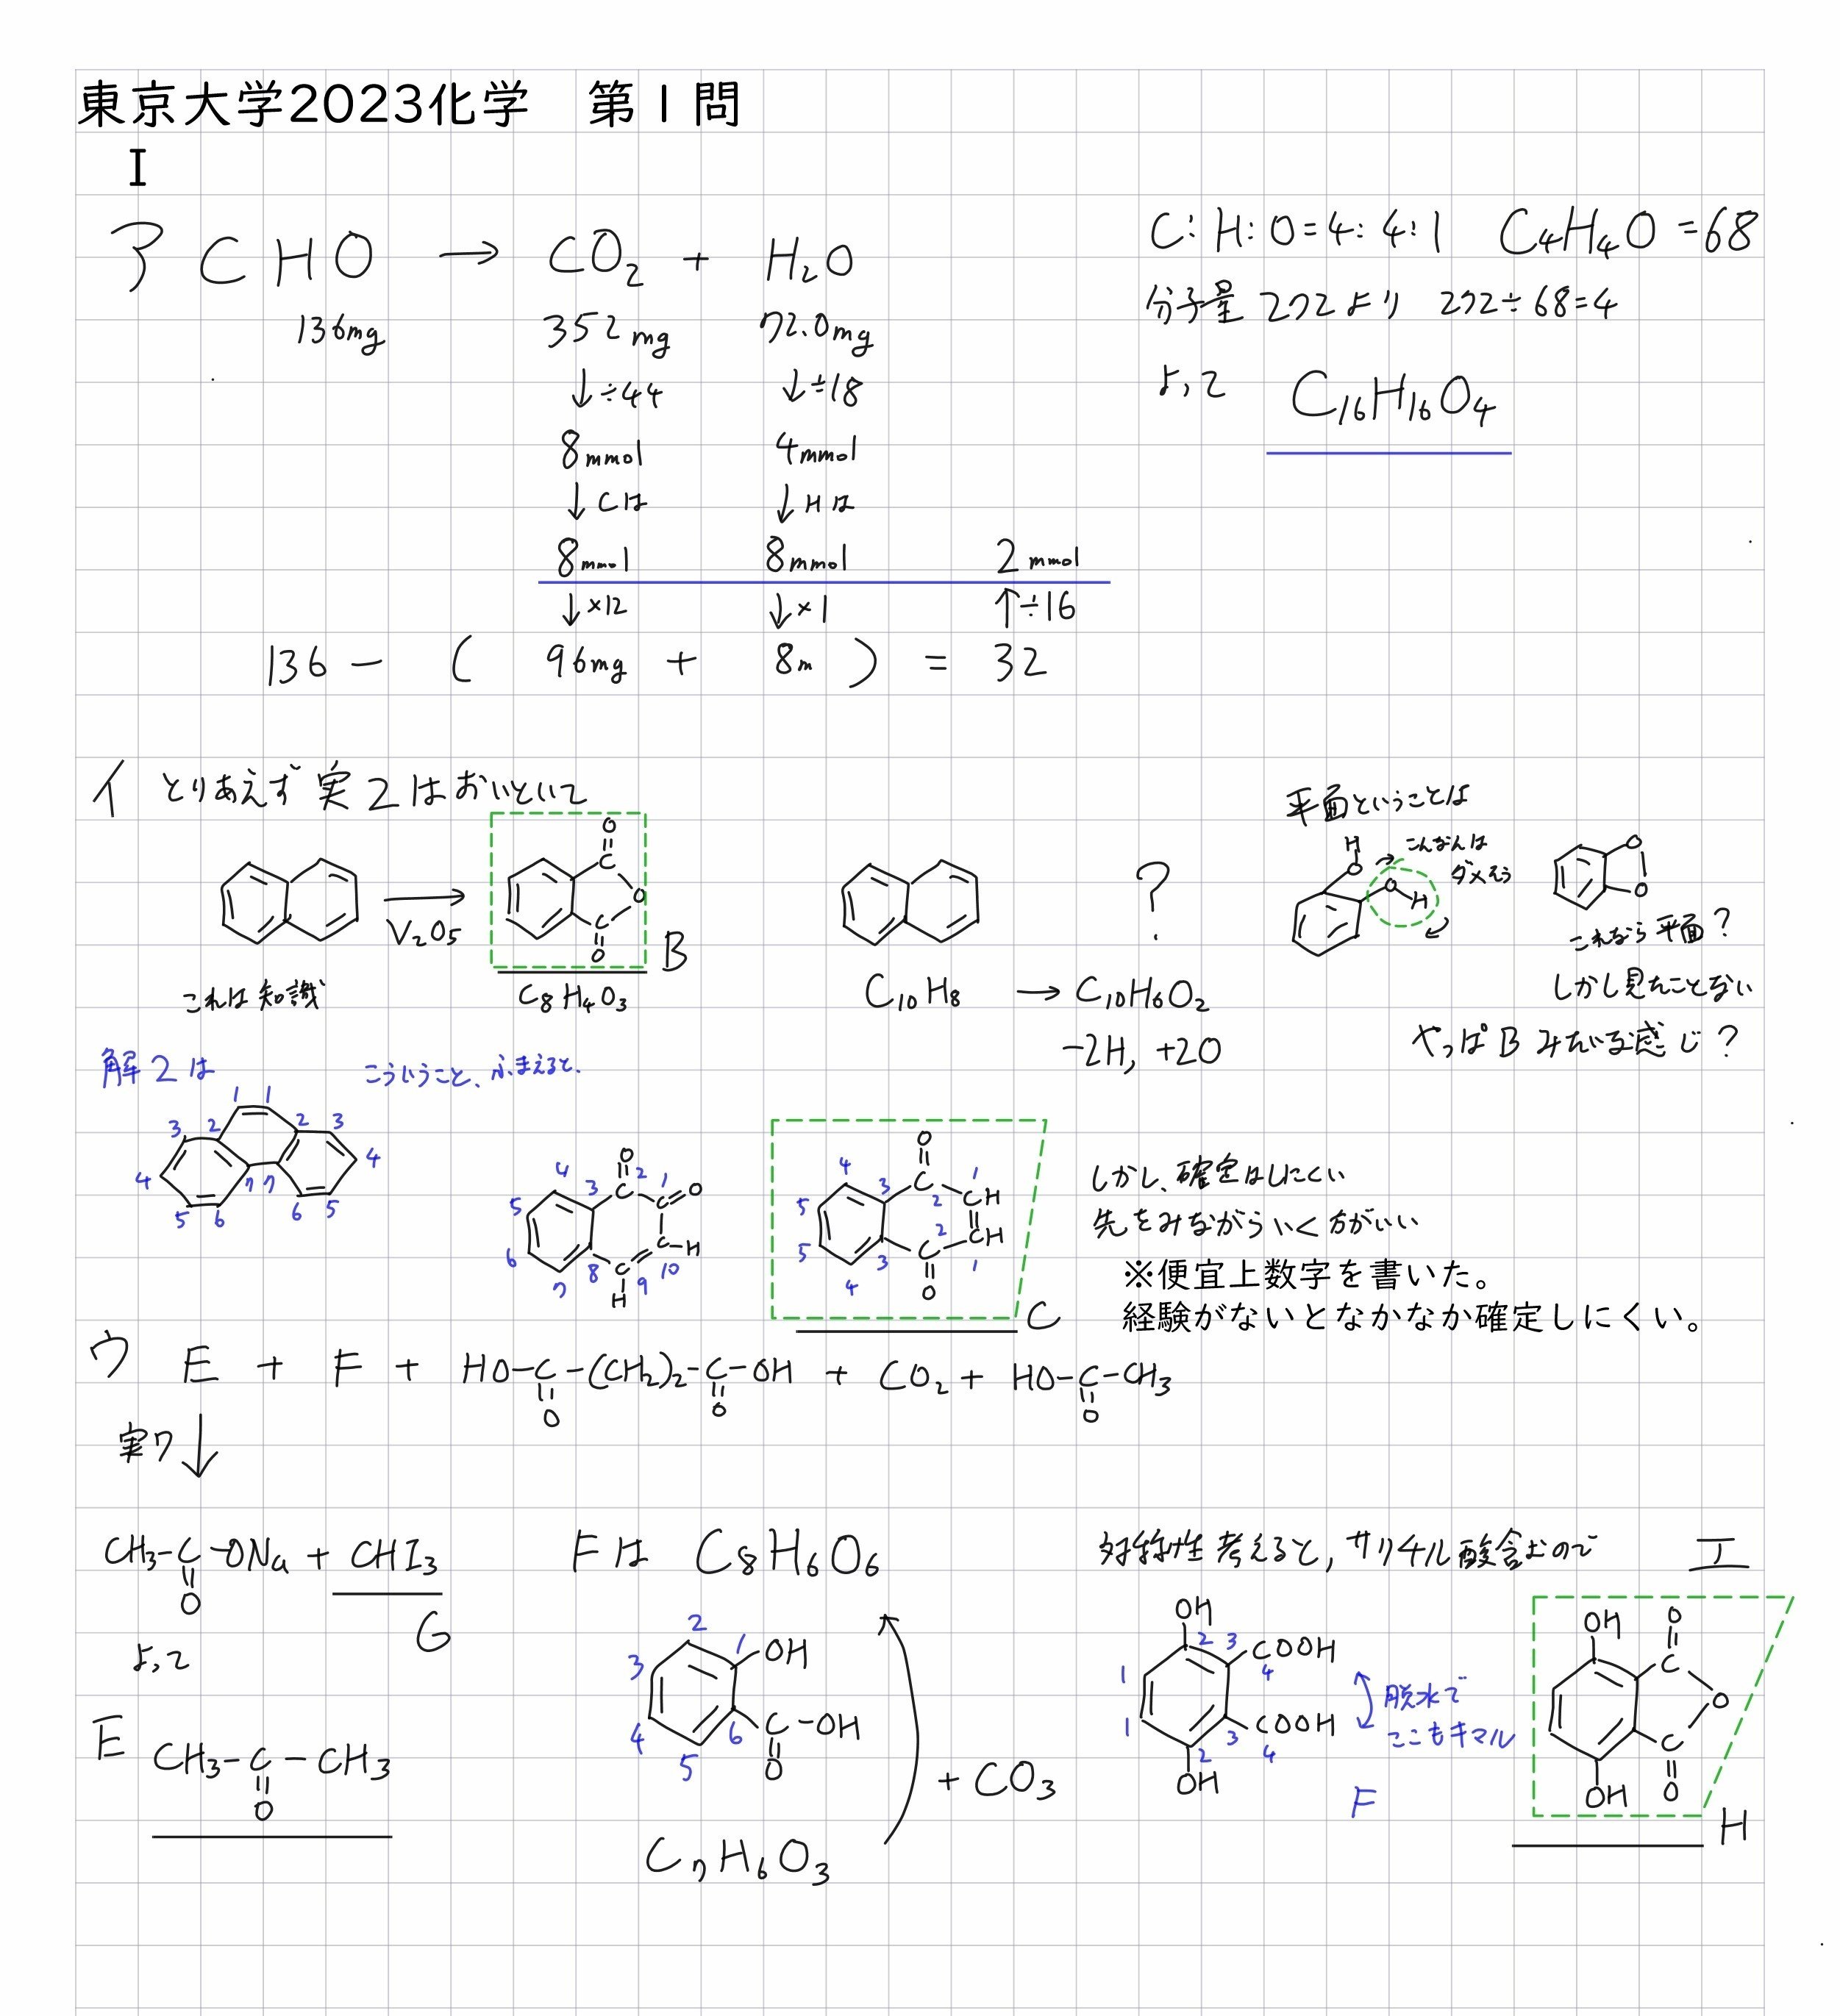 東京大学2023化学　第1問
I
ア CHO → CO₂ + H₂O
136mg 352mg 72.0mg
↓÷44 ↓÷18
8mmol 4mmol
↓Cは ↓Hは
8mmol 8mmol 2mmol
↓×12 ↓×1 ↑÷16
136 − ( 96mg + 8m ) = 32
C:H:O=4:4:1 C₄H₄O=68
分子量272より 272÷68=4
よって C₁₆H₁₆O₄
イ とりあえず実2はおいといて
V₂O₅
O C O C O
B
これは知識 C₈H₄O₃
?
C₁₀H₈ → C₁₀H₆O₂
−2H, +2O
平面ということは
H O O H
こんなんは
ダメそう
O O
これなら平面?
しかし見たことない
やっぱBみたいな感じ?
解2は
1 1 2 2 3 3 4 4 5 5 6 6 7 7
こういうこと、ふまえると、
O C C O C H C H
1 2 3 4 5 6 7 8 9 10
O C CH CH C O
1 1 2 2 3 3 4 4 5 5
C
しかし、確定はしにくい
先をみながらいく方がいい
※便宜上数字を書いた。
経験がないとなかなか確定しにくい。
ウ E + F + HO-C-(CH₂)₂-C-OH + CO₂ + HO-C-CH₃
O O O
実7↓
CH₃-C-ONa + CHI₃
O
G
よって
E CH₃-C-CH₃
O
Fは C₈H₆O₆
1 2 3 4 5 6
OH
C-OH
O
C₇H₆O₃
+CO₃
対称性考えると,サリチル酸含むので
OH
COOH
COOH
OH
1 1 2 2 3 3 4 4
脱水で
ここもキマル
F
エ
OH O C O C O OH
H